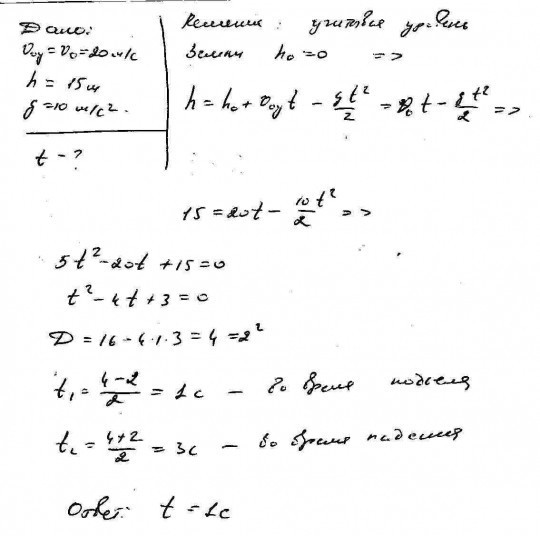 Дано:
v₀y = v₀ = 20 м/с
h = 15 м
g = 10 м/с².
t - ?
Решение: учитывая уровень
Земли h₀ = 0 =>
h = h₀ + v₀y t - gt²/2 = v₀t - gt²/2 =>
15 = 20t - 10t²/2 =>
5t² - 20t + 15 = 0
t² - 4t + 3 = 0
D = 16 - 4·1·3 = 4 = 2²
t₁ = (4-2)/2 = 1c - во время подъема
t₂ = (4+2)/2 = 3c - во время падения
Ответ: t = 1c